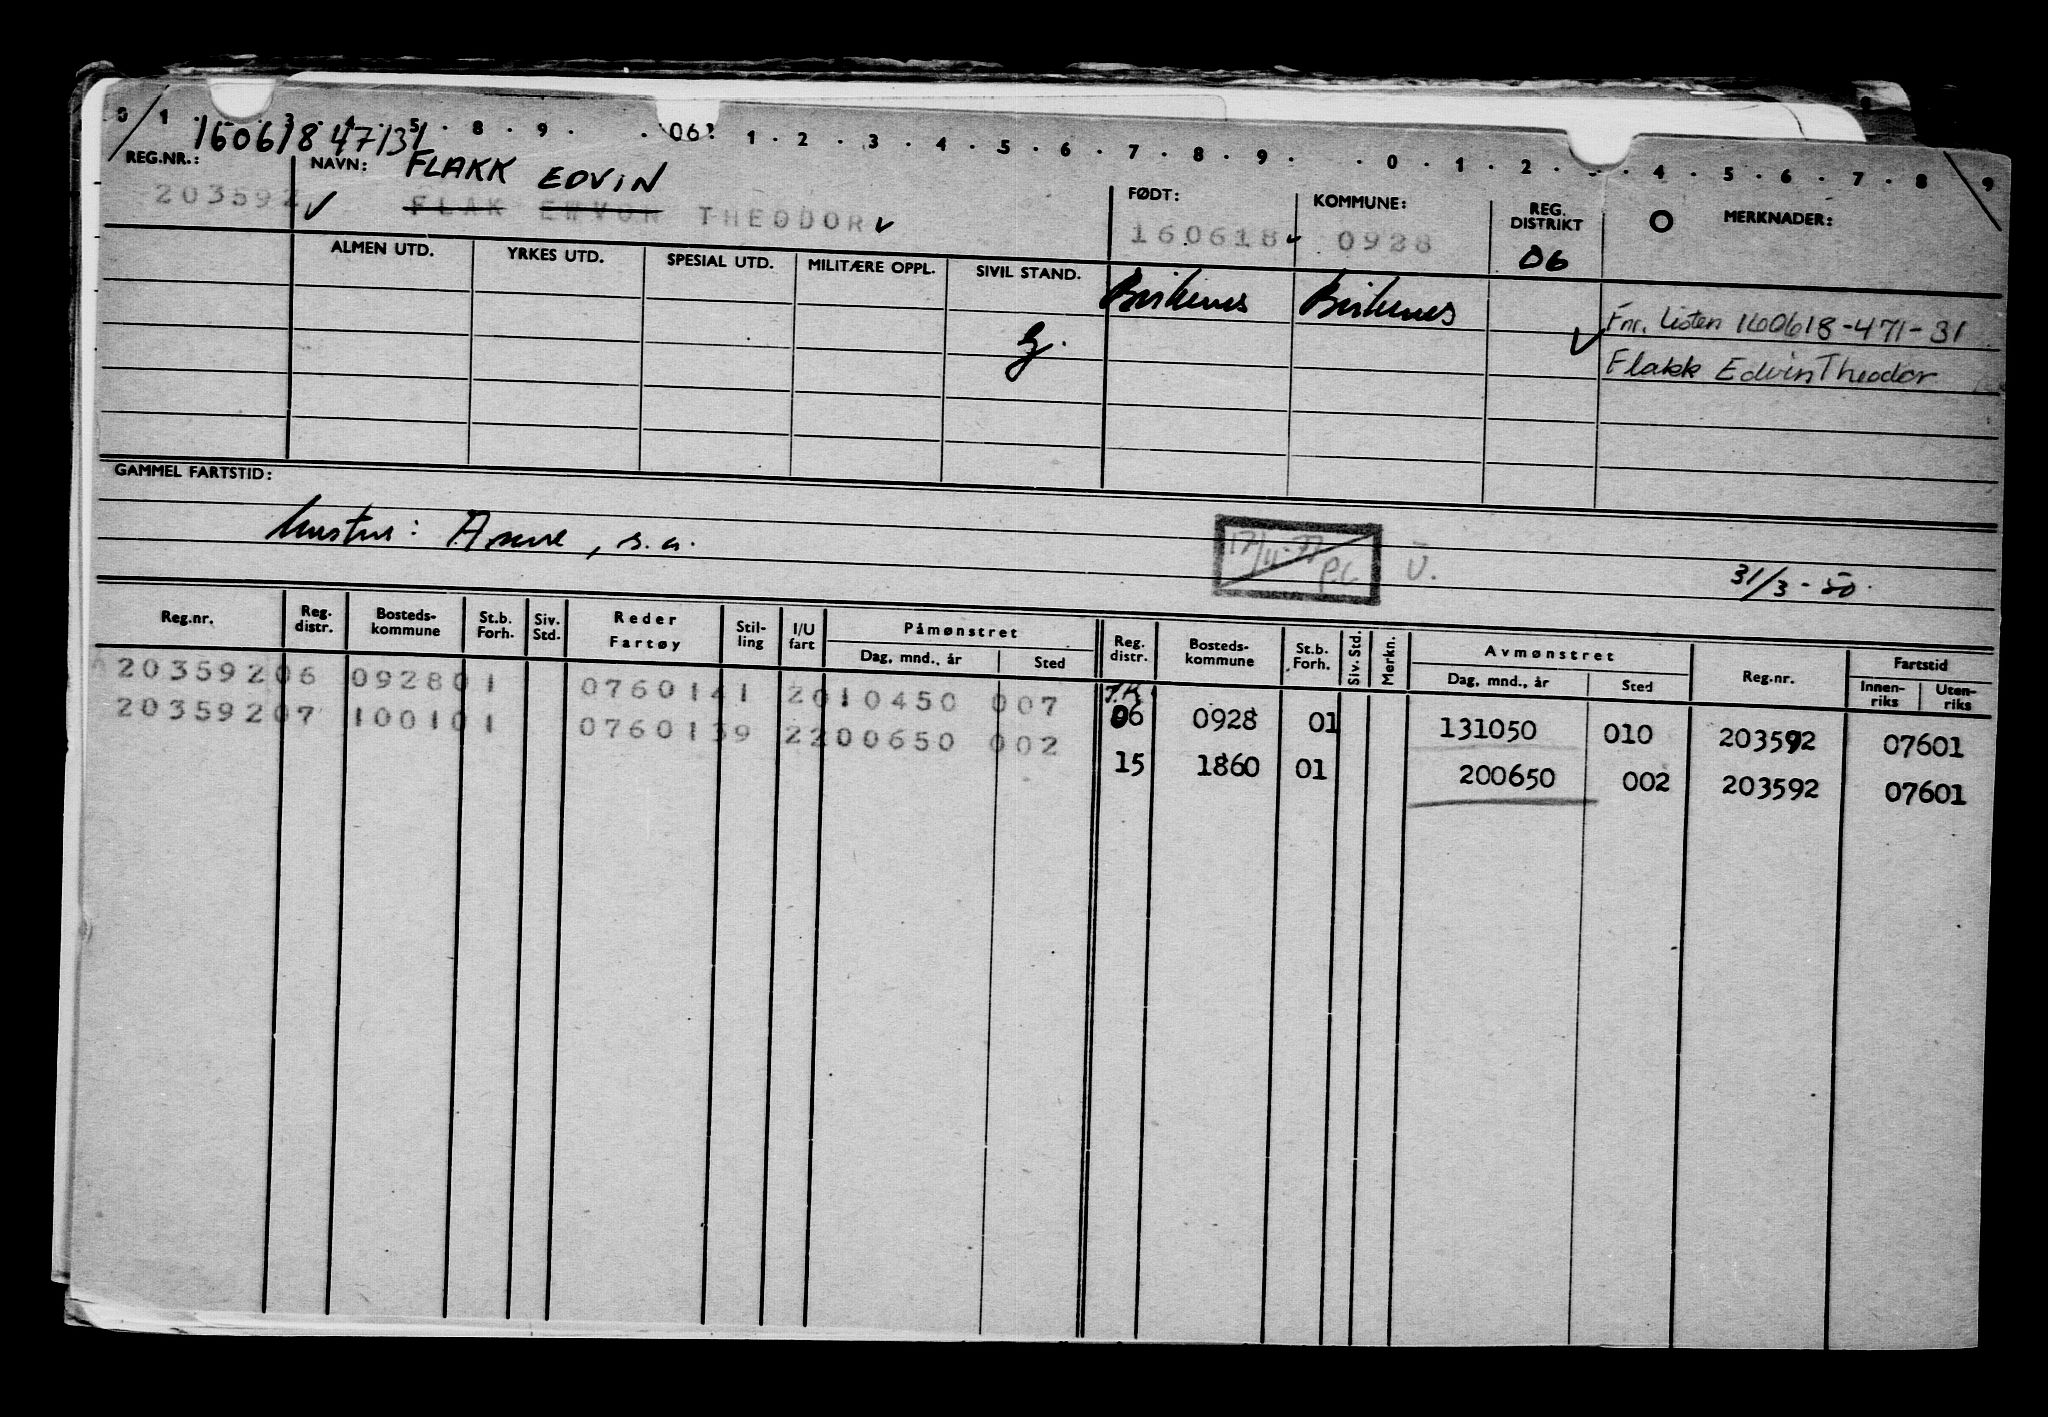 0 1 3 4 5 8 9 06? 1 2 3 4 5 6 7 8 9 0 1 2 3 4 5 6 7 8 9
160618 47131
REG.NR.: NAVN: FLAKK EDVIN FØDT: KOMMUNE: REG. DISTRIKT MERKNADER:
203592 FLAK THEODOR 160618 0928 06
ALMEN UTD. YRKES UTD. SPESIAL UTD. MILITÆRE OPPL. SIVIL STAND.
Birkenes Birkenes
Fnr. listen 160618-471-31
G.
Flakk Edvin Theodor
GAMMEL FARTSTID:
hustru: Anne, s.a.
17/11-77 P.L. U. 31/3-50.
Reg.nr. Reg. distr. Bosteds-kommune St.b. Forh. Siv. Std. Reder Fartøy Stil-ling I/U fart Påmønstret Dag, mnd., år Sted Reg. distr. Bosteds-kommune St.b. Forh. Siv. Std. Merkn. Avmønstret Dag, mnd., år Sted Reg.nr. Fartstid Innen-riks Uten-riks
20359206 092801 0760141 2010450 007 06 0928 01 131050 010 203592 07601
20359207 100101 0760139 2200650 002 15 1860 01 200650 002 203592 07601